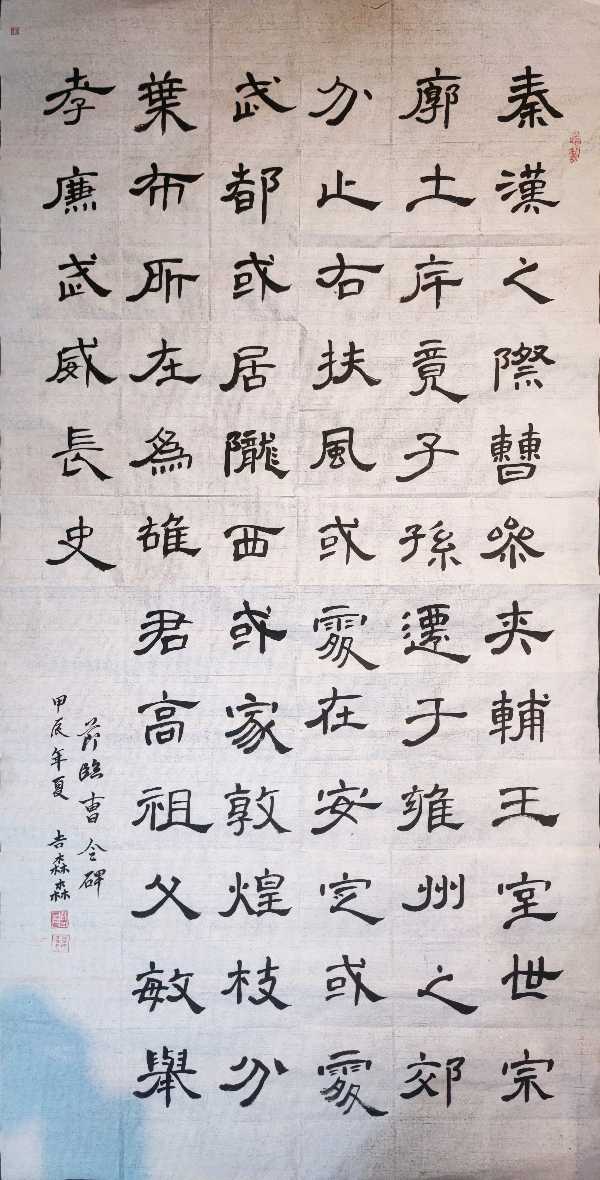 秦漢之際曹參夾輔王室世宗
廓土斥竟子孫遷于雍州之郊
分止右扶風或處在安定或處
武都或居隴西或家敦煌枝分
葉布所在為雄君高祖父敏舉
孝廉武威長史
節臨曹全碑
甲辰年夏 吉森森